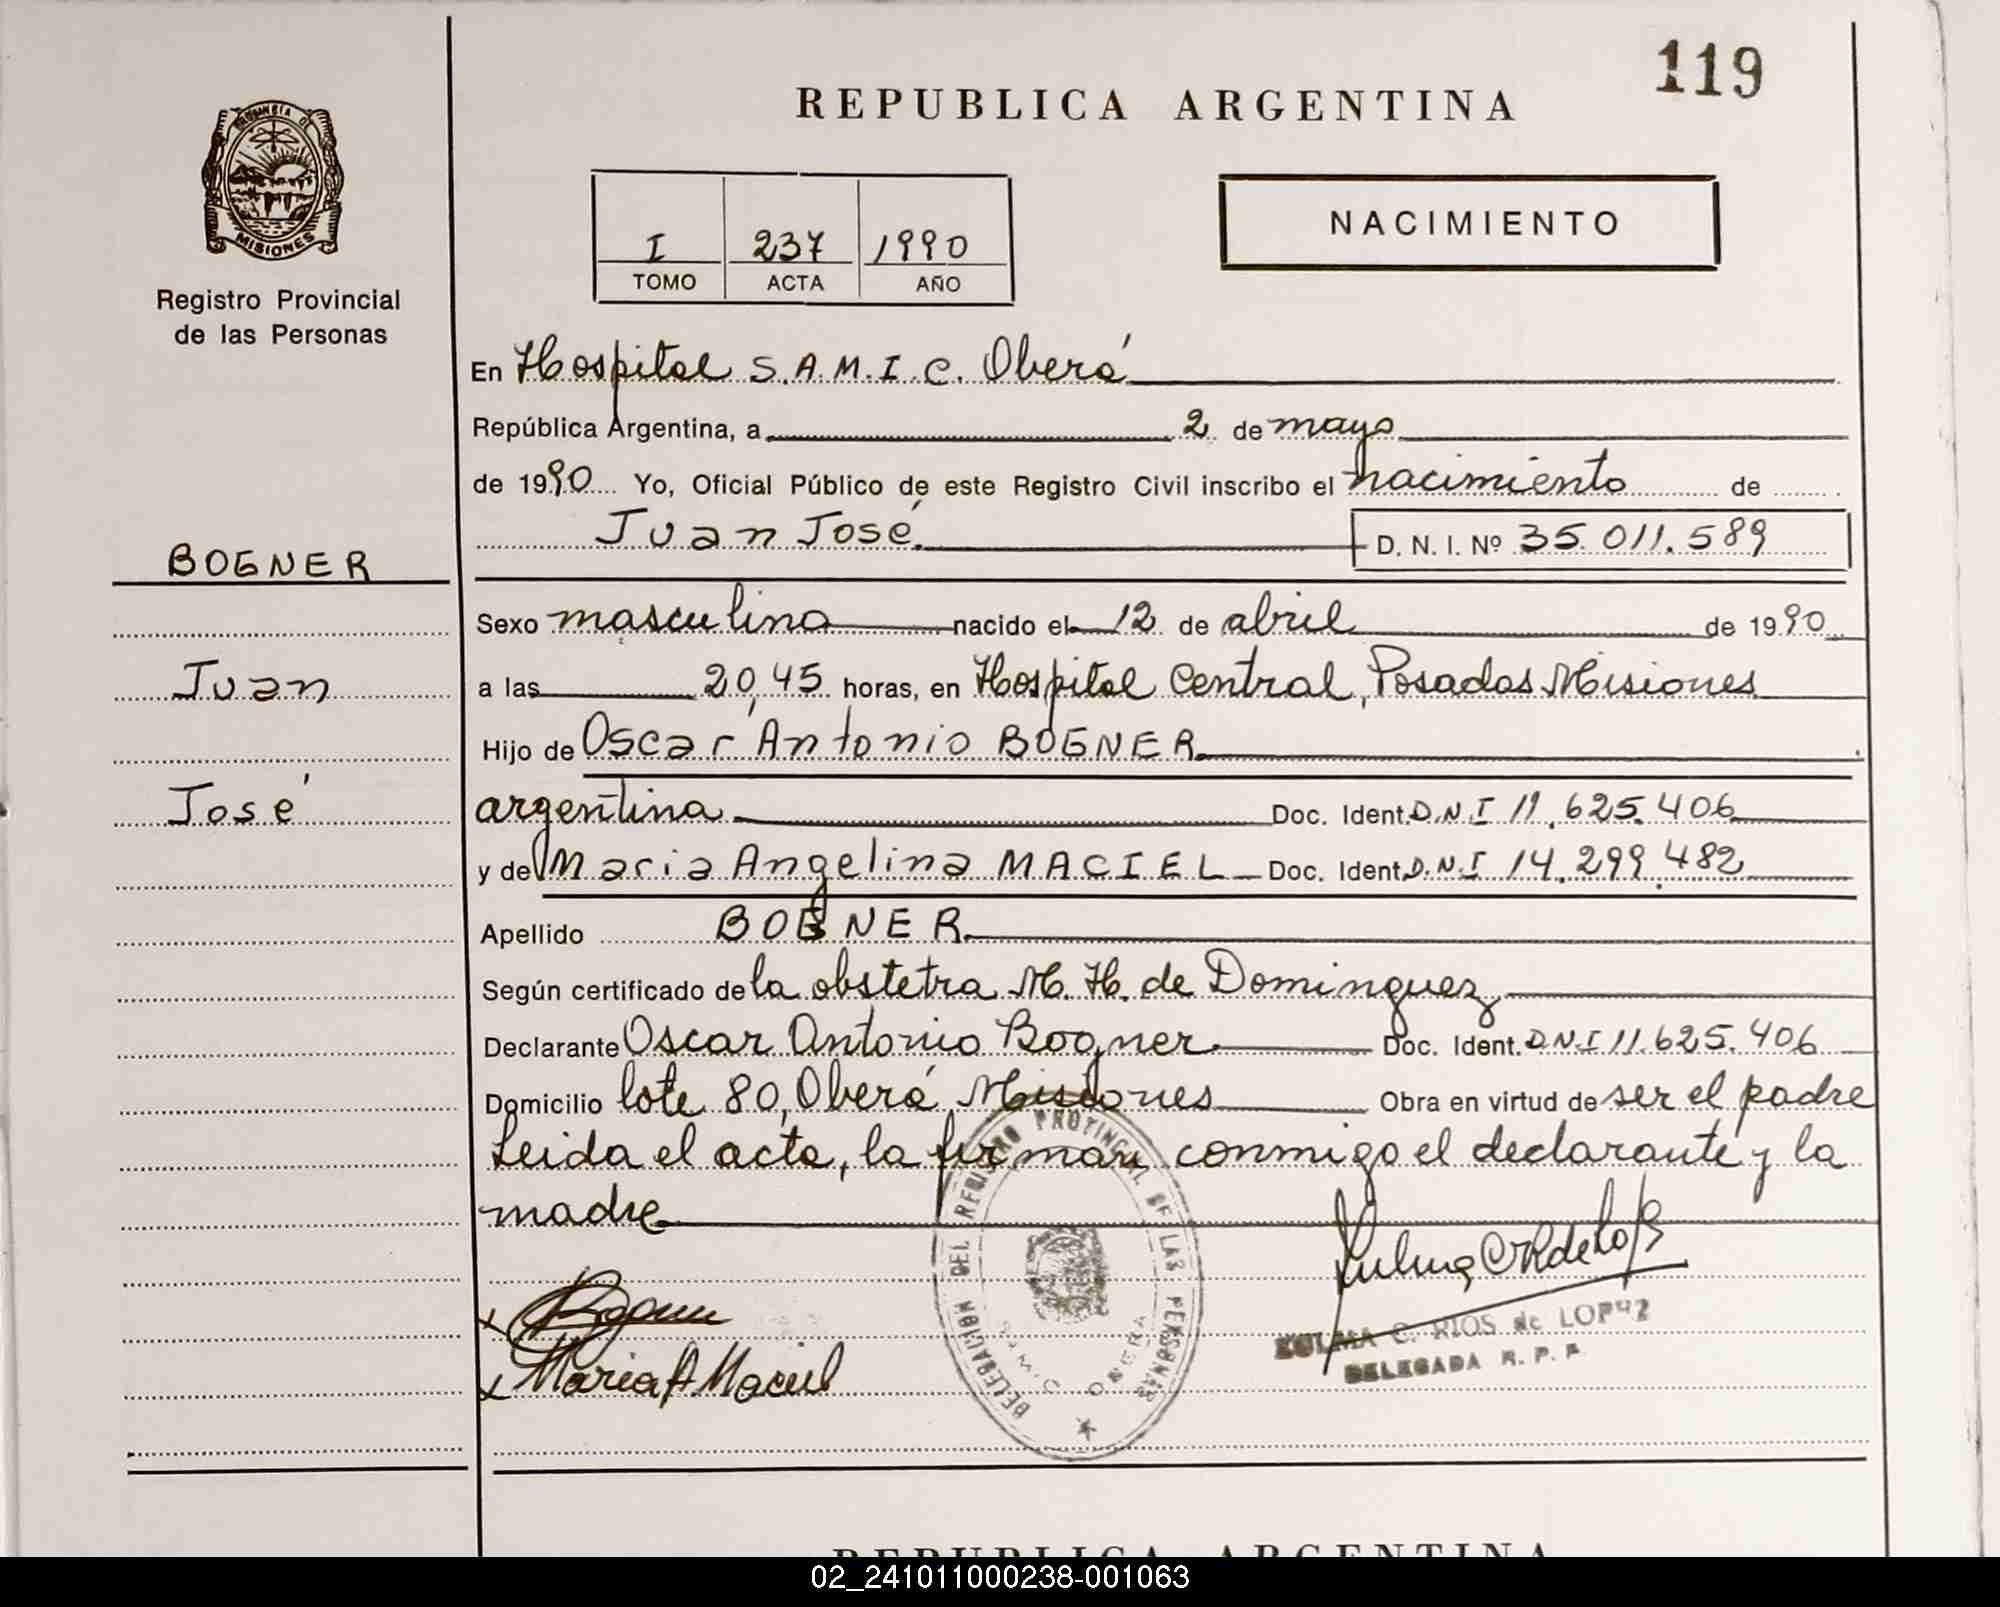 119
REPUBLICA ARGENTINA
PROVINCIA DE
MISIONES
Registro Provincial
de las Personas
I 237 1990
TOMO ACTA AÑO
NACIMIENTO
En Hospital S.A.M.I.C. Oberá
República Argentina, a 2 de mayo
de 1990 Yo, Oficial Público de este Registro Civil inscribo el nacimiento de
Juan José D. N. I. Nº 35.011.589
BOGNER
Sexo masculino nacido el 12 de abril de 1990
Juan
a las 20,45 horas, en Hospital Central, Posadas Misiones
Hijo de Oscar Antonio BOGNER
José
argentina Doc. Ident. D.N.I 11.625.406
y de Maria Angelina MACIEL Doc. Ident. D.N.I 14.299.482
Apellido BOGNER
Según certificado de la obstetra M. H. de Dominguez
Declarante Oscar Antonio Bogner Doc. Ident. D.N.I 11.625.406
Domicilio lote 80, Oberá Misiones Obra en virtud de ser el padre
Leida el acta, la firman conmigo el declarante y la
madre
DELEGACION DEL REGISTRO PROVINCIAL DE LAS PERSONAS
S.A.M.I.C. OBERA
x Bogner
x Maria A. Maciel
ZULMA C. RIOS de LOPEZ
DELEGADA R. P. P.
REPUBLICA ARGENTINA
02_241011000238-001063